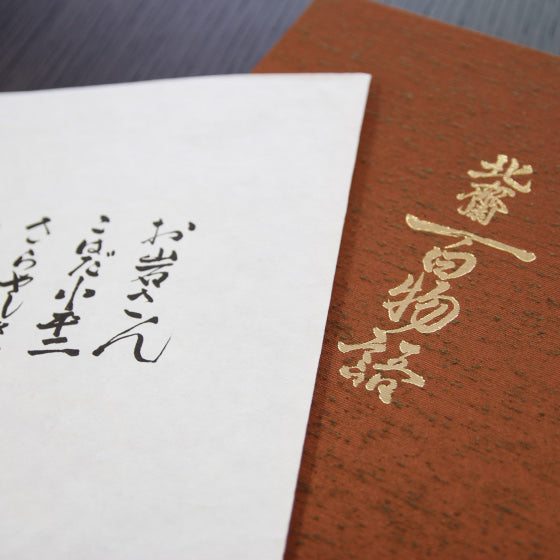 北齋
百物語
お岩さん
こはだ小平二
さらやしき